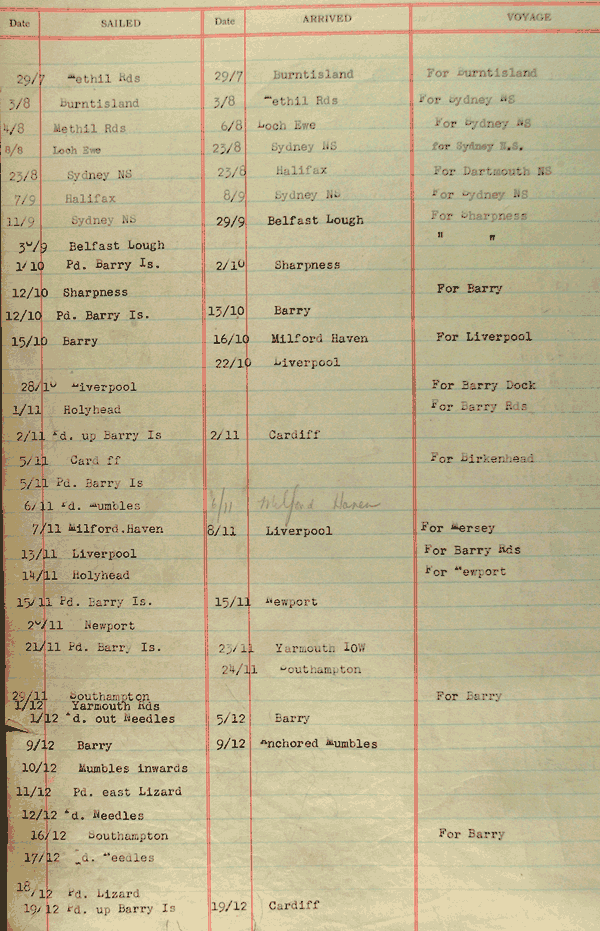 Date SAILED Date ARRIVED VOYAGE
29/7 Methil Rds 29/7 Burntisland For Burntisland
3/8 Burntisland 3/8 Methil Rds For Sydney NS
4/8 Methil Rds 6/8 Loch Ewe For Sydney NS
8/8 Loch Ewe 23/8 Sydney NS for Sydney N.S.
23/8 Sydney NS 23/8 Halifax For Dartmouth NS
7/9 Halifax 8/9 Sydney NS For Sydney NS
11/9 Sydney NS 29/9 Belfast Lough For Sharpness
30/9 Belfast Lough " "
1/10 Pd. Barry Is. 2/10 Sharpness
12/10 Sharpness For Barry
12/10 Pd. Barry Is. 13/10 Barry
15/10 Barry 16/10 Milford Haven For Liverpool
22/10 Liverpool
28/10 Liverpool For Barry Dock
1/11 Holyhead For Barry Rds
2/11 Pd. up Barry Is 2/11 Cardiff
5/11 Card ff For Birkenhead
5/11 Pd. Barry Is
6/11 Pd. Mumbles 6/11 Milford Haven
7/11 Milford.Haven 8/11 Liverpool For Mersey
13/11 Liverpool For Barry Rds
14/11 Holyhead For Newport
15/11 Pd. Barry Is. 15/11 Newport
20/11 Newport
21/11 Pd. Barry Is. 23/11 Yarmouth IOW
24/11 Southampton
29/11 Southampton For Barry
1/12 Yarmouth Rds
1/12 Pd. out Needles 5/12 Barry
9/12 Barry 9/12 Anchored Mumbles
10/12 Mumbles inwards
11/12 Pd. east Lizard
12/12 Pd. Needles
16/12 Southampton For Barry
17/12 Pd. Needles
18/12 Pd. Lizard
19/12 Pd. up Barry Is 19/12 Cardiff